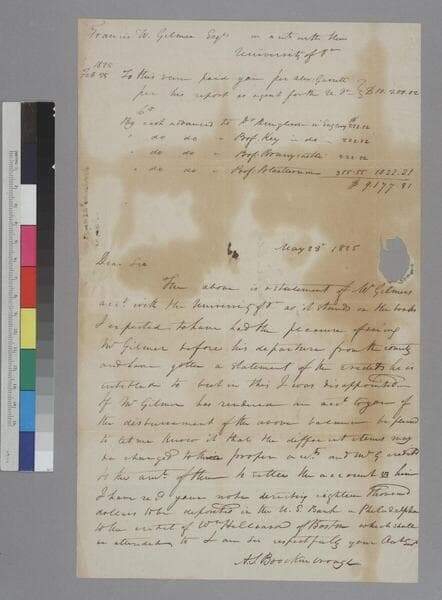 Francis W. Gilmer Esqr in acct with the
University of Va
1825
Feb To this sum paid you per Alex. Garrett
per his report as agent for the U Va $10.200.02
Cr
By cash advanced to Dr Dunglison in England 222.12
" do do " Prof. Key in do " 222.12
" do do " Prof. Bonnycastle 222.12
" do do " Prof. Blaetterman 355.55 1022.21
$ 9177.81
May 23d 1825
Dear Sir
The above is a statement of Mr Gilmers
acct with the University of Va as it stands on the books
I expected to have had the pleasure of seeing
Mr Gilmer before his departure from the county
and have gotten a statement of the credits he is
entitled to but in this I was disappointed
If Mr Gilmer has rendered an acct to you of
the disbursement of the above balance be pleased
to let me know it that the different items may
be changed to their proper accts. and Mr G credited
by the amt. of them to the account
I have recd your note directing eighteen thousand
dollars to be deposited in the U.S. Bank in Philadelphia
to the credit of Wm of Boston which shall
be attended to I am Sir respectfully your Obt Sert
A S Brockenbrough